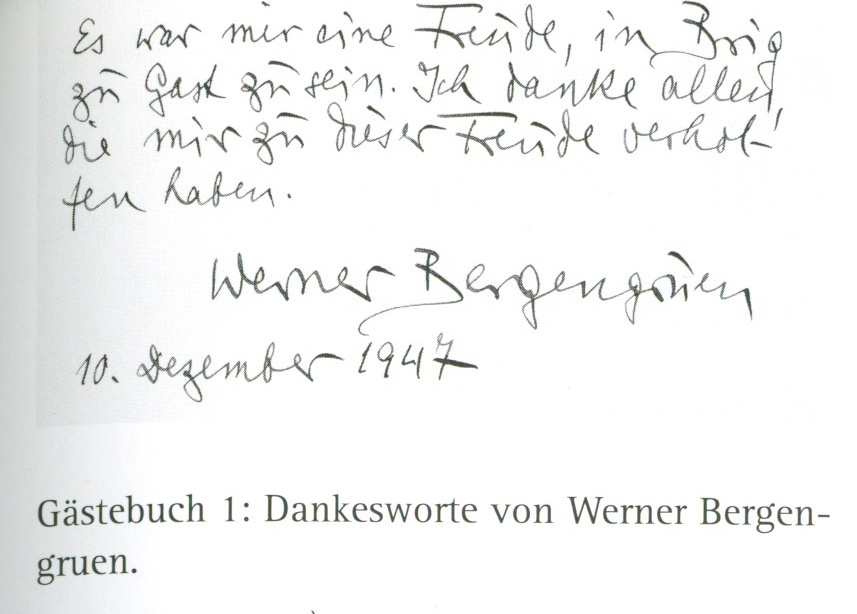 Es war mir eine Freude, in Brig
zu Gast zu sein. Ich danke allen,
die mir zu dieser Freude verhol-
fen haben.
Werner Bergengruen
10. Dezember 1947
Gästebuch 1: Dankesworte von Werner Bergen-
gruen.